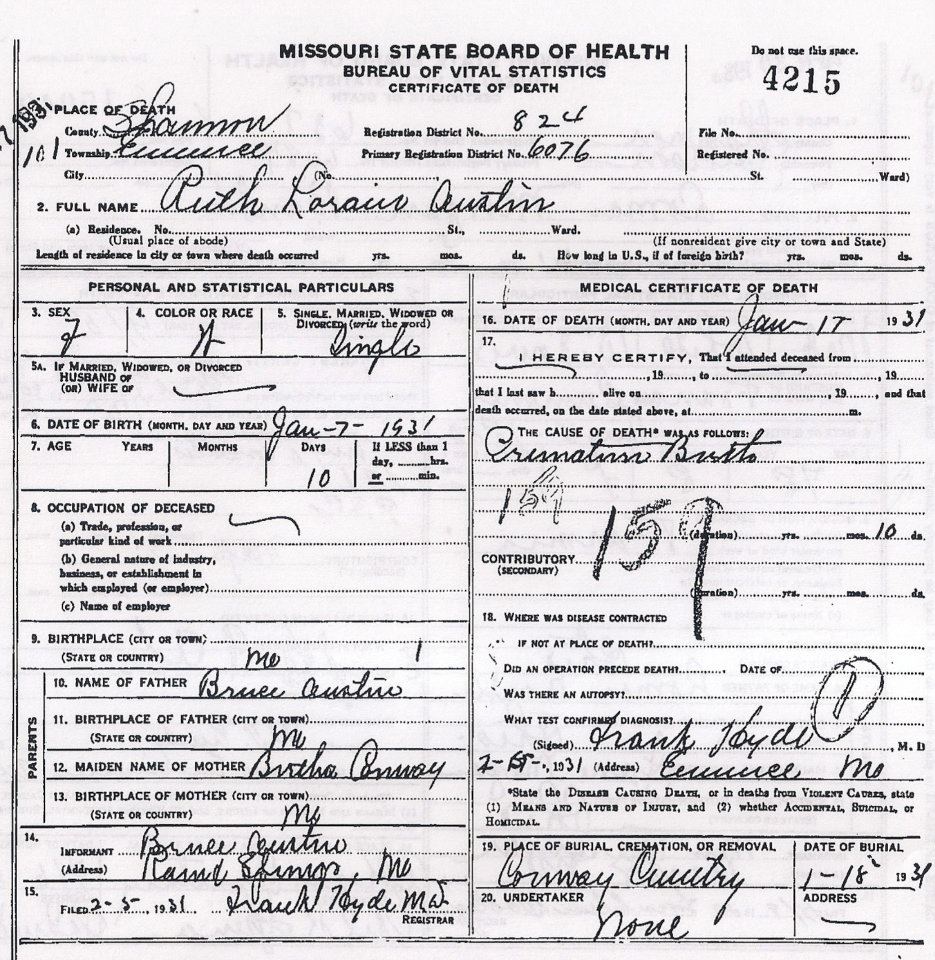 MISSOURI STATE BOARD OF HEALTH
BUREAU OF VITAL STATISTICS
CERTIFICATE OF DEATH
Do not use this space.
4215
1931
101
PLACE OF DEATH
County Shannon
Registration District No. 824
File No.
Township Eminence
Primary Registration District No. 6076
Registered No.
City (No. St. Ward)
2. FULL NAME Ruth Austin
(a) Residence. No. St., Ward.
(Usual place of abode) (If nonresident give city or town and State)
Length of residence in city or town where death occurred yrs. mos. ds. How long in U.S., if of foreign birth? yrs. mos. ds.
PERSONAL AND STATISTICAL PARTICULARS
3. SEX
F
4. COLOR OR RACE
W
5. SINGLE, MARRIED, WIDOWED OR DIVORCED (write the word)
Single
5A. IF MARRIED, WIDOWED, OR DIVORCED
HUSBAND OF
(OR) WIFE OF
6. DATE OF BIRTH (MONTH, DAY AND YEAR) Jan-7-1931
7. AGE YEARS MONTHS DAYS If LESS than 1
day, hrs.
or min.
10
8. OCCUPATION OF DECEASED
(a) Trade, profession, or
particular kind of work
(b) General nature of industry,
business, or establishment in
which employed (or employer)
(c) Name of employer
9. BIRTHPLACE (CITY OR TOWN)
(STATE OR COUNTRY) Mo
PARENTS
10. NAME OF FATHER Bruce Austin
11. BIRTHPLACE OF FATHER (CITY OR TOWN)
(STATE OR COUNTRY) Mo
12. MAIDEN NAME OF MOTHER Bertha Conway
13. BIRTHPLACE OF MOTHER (CITY OR TOWN)
(STATE OR COUNTRY) Mo
14.
INFORMANT Bruce Austin
(Address) Round Springs, Mo
15.
FILED 2-5, 1931 Frank Hyde MD
REGISTRAR
MEDICAL CERTIFICATE OF DEATH
16. DATE OF DEATH (MONTH, DAY AND YEAR) Jan-17 1931
17.
I HEREBY CERTIFY, That I attended deceased from
, 19 , to , 19
that I last saw h alive on , 19 , and that
death occurred, on the date stated above, at m.
THE CAUSE OF DEATH* WAS AS FOLLOWS:
Premature Birth
159
159
(duration) yrs. mos. 10 ds.
CONTRIBUTORY
(SECONDARY)
(duration) yrs. mos. ds.
18. WHERE WAS DISEASE CONTRACTED
IF NOT AT PLACE OF DEATH?
DID AN OPERATION PRECEDE DEATH? DATE OF
WAS THERE AN AUTOPSY?
WHAT TEST CONFIRMED DIAGNOSIS?
1
(Signed) Frank Hyde, M. D
, 1931 (Address) Eminence Mo
*State the DISEASE CAUSING DEATH, or in deaths from VIOLENT CAUSES, state
(1) MEANS AND NATURE OF INJURY, and (2) whether ACCIDENTAL, SUICIDAL, or
HOMICIDAL.
19. PLACE OF BURIAL, CREMATION, OR REMOVAL
Conway Cemetery
DATE OF BURIAL
1-18 1931
20. UNDERTAKER
None
ADDRESS